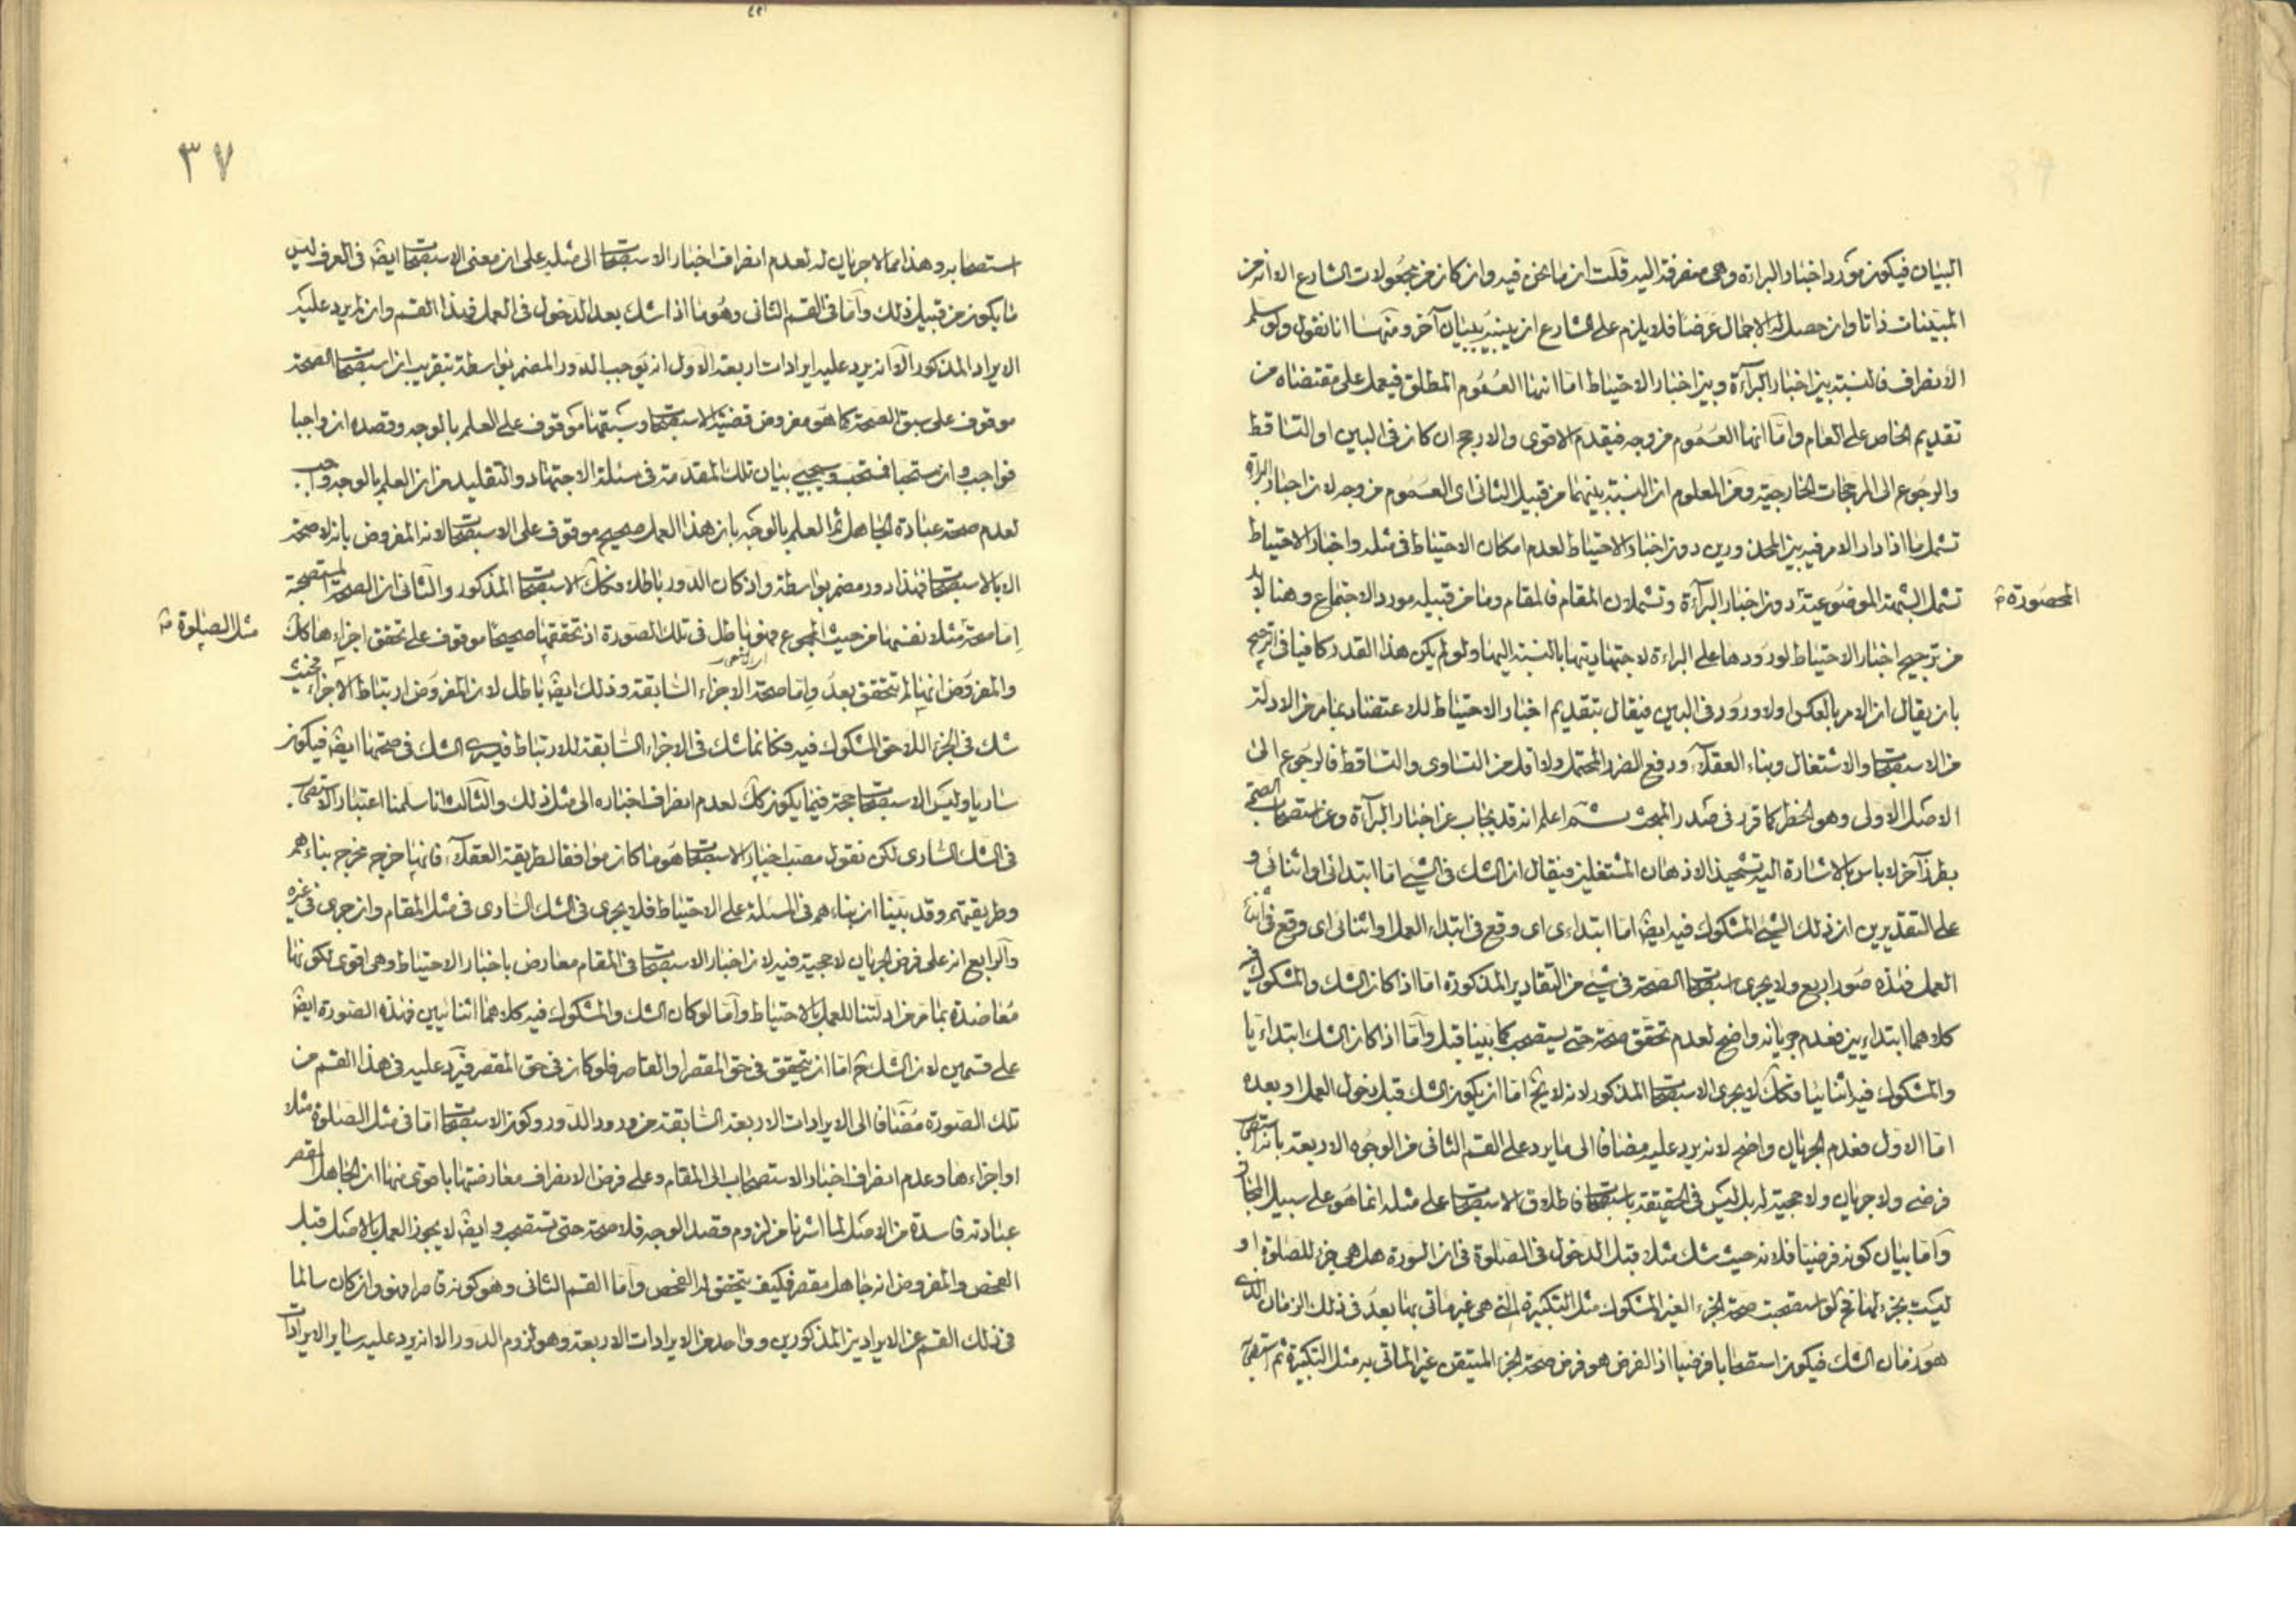 البيان فيكون مورد اخبار البراءة وهى منصرفة اليه قلت ان ما نحن فيه وان كان من مجعولات الشارع الا انه من
المبينات ذاتا وان حصل له الاجمال عرضا فلا يلزم على الشارع ان يبينه ببيان آخر ومنها انا نقول ولو سلم
الانصراف فالنسبة بين اخبار البرآءة وبين اخبار الاحتياط اما انها العموم المطلق فيعمل على مقتضاه من
تقديم الخاص على العام واما انها العموم من وجه فيقدم الاقوى والارجح ان كان فى البين او التساقط
والرجوع الى المرجحات الخارجية ومن المعلوم ان النسبة بينهما من قبيل الثانى اى العموم من وجه لان اخبار البراءة
تشمل ما اذا دار الامر فيه بين المحذورين دون اخبار الاحتياط لعدم امكان الاحتياط فى مثله واخبار الاحتياط
تشمل الشبهة الموضوعية دون اخبار البرآءة وتشملان المقام فالمقام وما من قبيله مورد الاجتماع وهنا لابد
المحصورة
من ترجيح اخبار الاحتياط لورودها على البراءة لاجتهاديتها بالنسبة اليها ولو لم يكن هذا القدر كافيا فى الترجيح
بان يقال ان الامر بالعكس او لا ورود فى البين فيقال بتقديم اخبار الاحتياط للاعتضاد بما مر من الادلة
من الاستصحاب والاشتغال وبناء العقلاء ودفع الضرر المحتمل ولا اقل من التساوى والتساقط فالرجوع الى
الاصل الاولى وهو الحظر كما قرر فى صدر المبحث ثم اعلم انه قد يجاب عن اخبار البرآءة وعن استصحاب الصحة
بطرز آخر لا باس بالاشارة اليه تشحيذا لاذهان المشتغلين فيقال ان الشك فى الشئ اما ابتدائى او اثنائى و
على التقديرين ان ذلك الشئ المشكوك فيه ايضا اما ابتداءى اى وقع فى ابتداء العمل او اثنائى اى وقع فى اثناء
العمل فهذه صور اربع ولا يجرى استصحاب الصحة فى شئ من التقادير المذكورة اما اذا كان الشك والمشكوك فيه
كلاهما ابتداءيين فعدم جريانه واضح لعدم تحقق صحة حتى يستصحب كما بينا قبل واما اذا كان الشك ابتداءيا
والمشكوك فيه اثنائيا فكك لا يجرى الاستصحاب المذكور لانه لا يخ اما ان يكون الشك قبل دخول العمل او بعده
اما الاول فعدم الجريان واضح لانه يرد عليه مضافا الى ما يرد على القسم الثانى من الوجوه الاربعة بانه استصحاب
فرضى ولا جريان ولا حجية له بل ليس فى الحقيقة باستصحاب فاطلاق الاستصحاب على مثله انما هو على سبيل المجاز
واما بيان كونه فرضيا فلانه حيث شك مثلا قبل الدخول فى الصلوة فى ان السورة هل هى جزء للصلوة او
ليست بجزء لها فح لو استصحبت صحة الجزء الغير المشكوك مثل التكبيرة التى هى غير ماتى بها بعد فى ذلك الزمان الذى
هو زمان الشك فيكون استصحابا فرضيا اذ الفرض هو فرض صحة الجزء المتيقن غير الماتى به مثل التكبيرة ثم استصحاب
٣٧
استصحابه وهذا مما لا جريان له لعدم انصراف اخبار الاستصحاب الى مثله على ان معنى الاستصحاب ايضا فى العرف ليس
ما يكون من قبيل ذلك وأما فى القسم الثانى وهو ما اذا شك بعد الدخول فى العمل فهذا القسم وان لم يرد عليه
الايراد المذكور الا انه يرد عليه ايرادات اربعة الاول انه يوجب الدور المضمر بواسطة بتقريب ان استصحاب الصحة
موقوف على سبق الصحة كما هو مفروض قضية الاستصحاب وسبقها موقوف على العلم بالوجه وقصده ان واجبا
فواجب وان مستحبا فمستحب وسيجيئ بيان تلك المقدمة فى مسئلة الاجتهاد والتقليد من ان العلم بالوجه واجب
لعدم صحة عبادة الجاهل ثم العلم بالوجه بان هذا العمل صحيح موقوف على الاستصحاب لانه المفروض بانه لا صحة
الا بالاستصحاب فهذا دور مضمر بواسطة واذ كان الدور باطلا فكك الاستصحاب المذكور والثانى ان الصحة المستصحبة
اما صحة مثلا نفسها من حيث المجموع فهو باطل فى تلك الصورة اذ تحققها صحيحا موقوف على تحقق اجزاءها كك
مثل الصلوة
والمفروض انها لم تتحقق بعد واما صحة الاجزاء السابقة وذلك ايضا باطل لان المفروض ارتباط الاجزاء فحيث
شك فى الجزء اللاحق المشكوك فيه فكانما شك فى الاجزاء السابقة للارتباط فيسرى الشك فى صحتها ايضا فيكون
ساريا وليس الاستصحاب حجة فيما يكون كك لعدم انصراف اخباره الى مثل ذلك والثالث انا سلمنا اعتبار الاستصحاب
فى الشك السارى لكن نقول مصب اخبار الاستصحاب هو ما كان موافقا لطريقة العقلاء فانها خرجه مخرج بناءهم
وطريقتهم وقد بينا ان بناءهم فى المسئلة على الاحتياط فلا يجرى فى الشك السارى فى مثل المقام وان جرى فى غيره
والرابع انه على فرض الجريان لا حجية فيه لان اخبار الاستصحاب فى المقام معارض باخبار الاحتياط وهى اقوى لكونها
معاضدة بما مر من ادلتنا للعمل بالاحتياط وأما لو كان الشك والمشكوك فيه كلاهما اثنائيين فهذه الصورة ايضا
على قسمين لان الشك ح اما ان يتحقق فى حق المقصر او القاصر فلو كان فى حق المقصر فيرد عليه فى هذا القسم من
تلك الصورة مضافا الى الايرادات الاربعة السابقة من ورود الدور وكون الاستصحاب اما فى مثل الصلوة مثلا
او اجزاءها وعدم انصراف اخبار الاستصحاب الى المقام وعلى فرض الانصراف معارضتها باقوى منها ان الجاهل المقصر
عبادته فاسدة من الاصل لما اشرنا من لزوم قصد الوجه فلا صحة حتى تستصحب وايضا لا يجوز العمل بالاصل قبل
الفحص والمفروض انه جاهل مقصر فكيف يتحقق له الفحص واما القسم الثانى وهو كونه قاصرا فهو وان كان سالما
فى ذلك القسم عن الايرادين المذكورين وواحد من الايرادات الاربعة وهو لزوم الدور الا انه يرد عليه ساير الايرادات